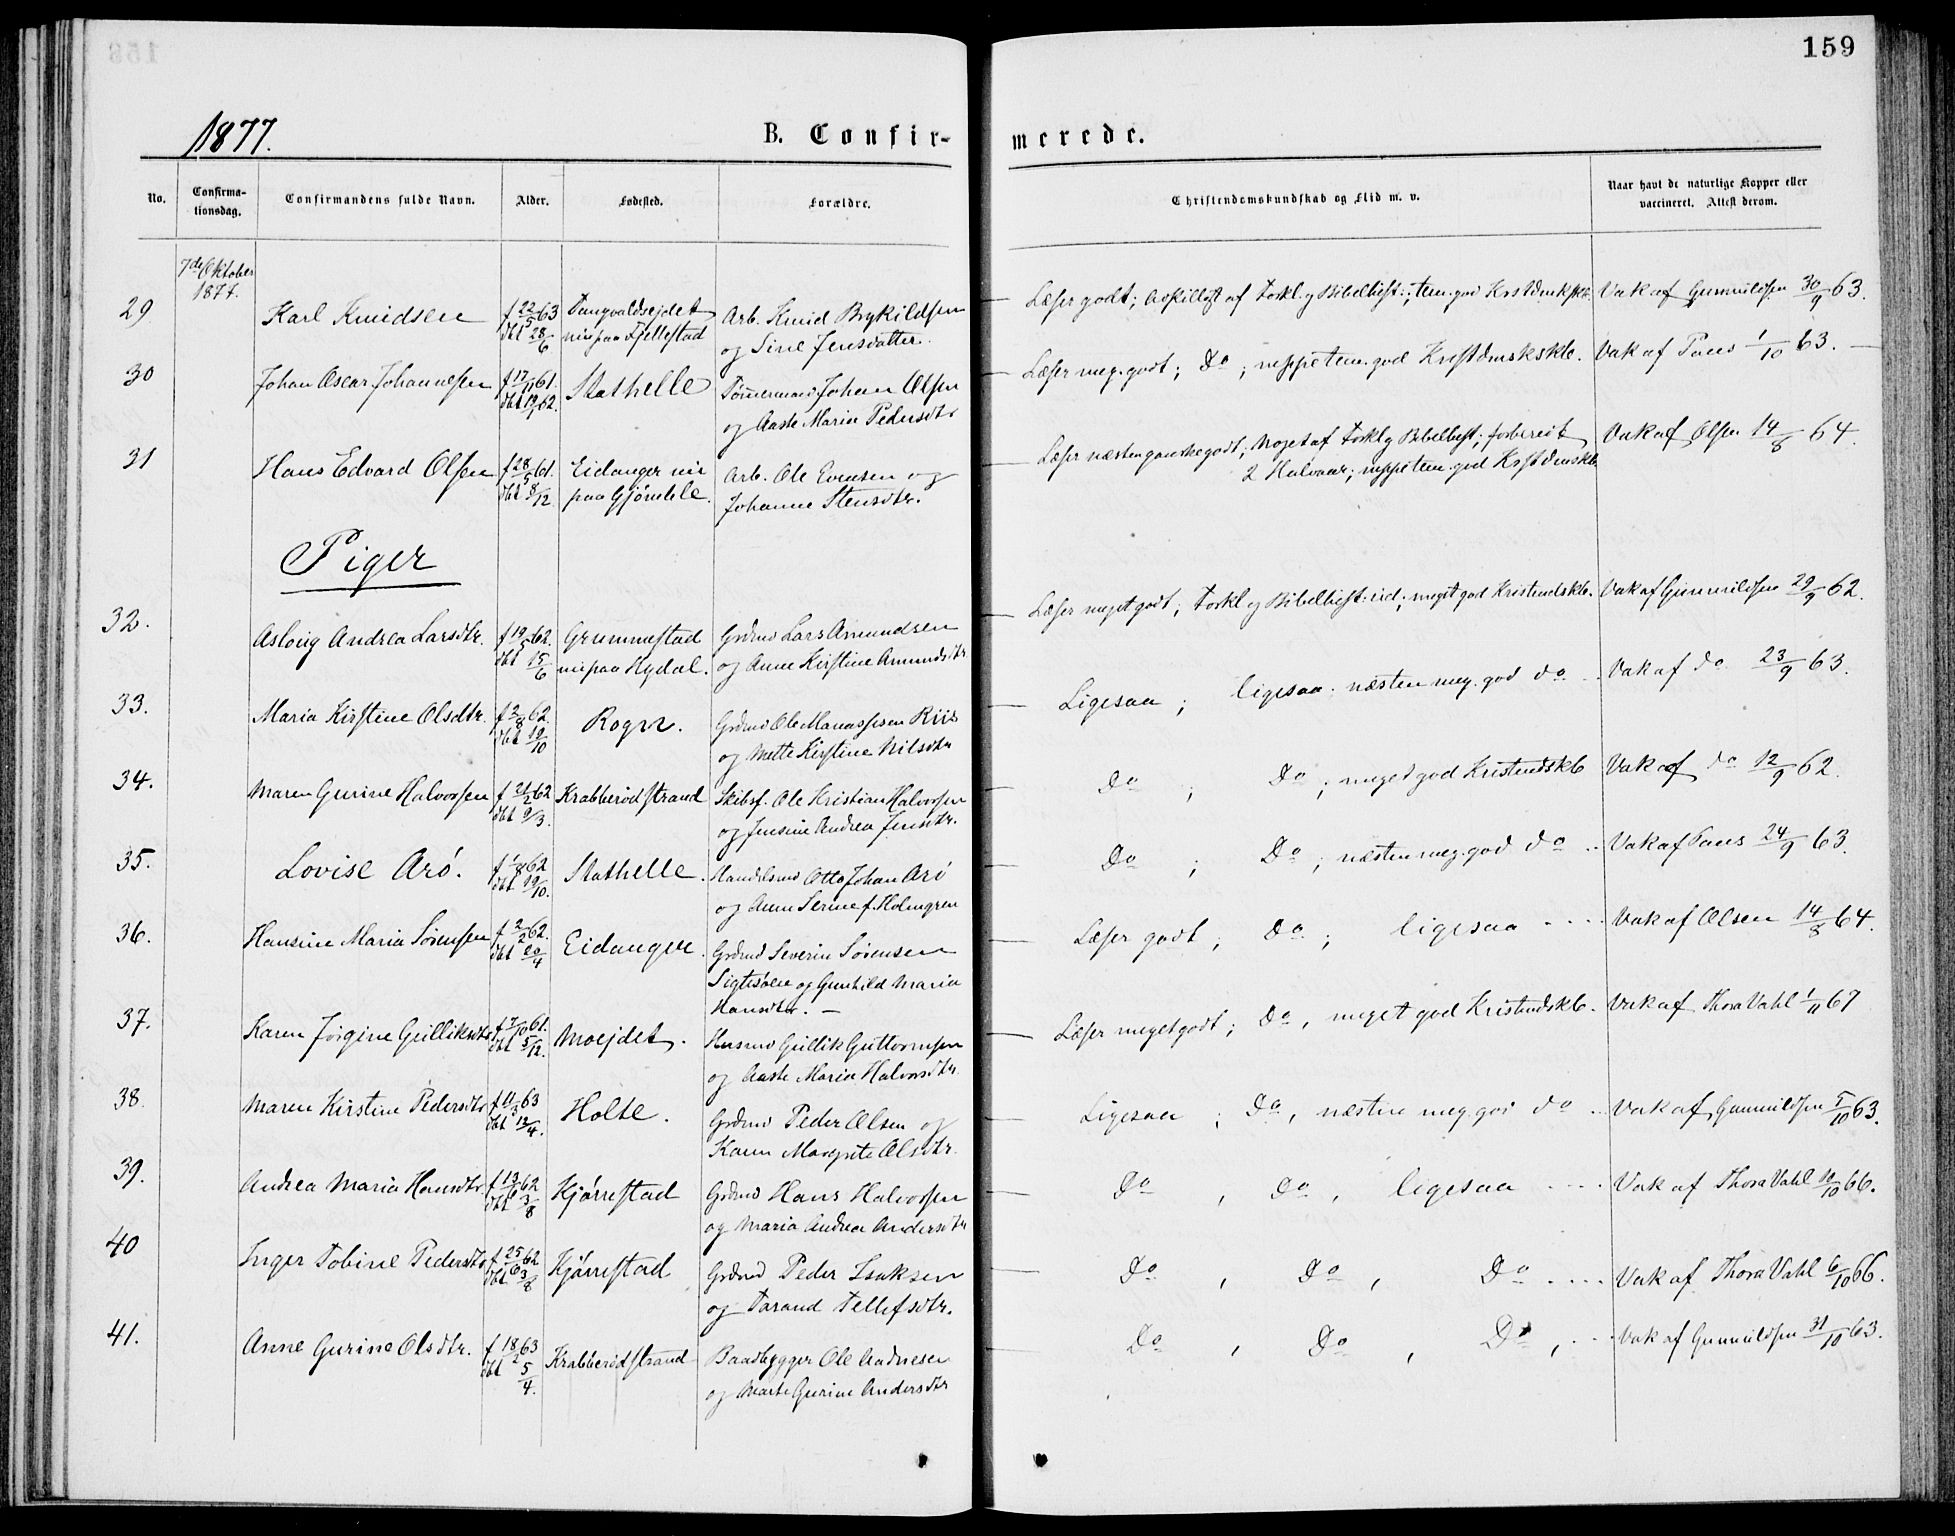 159
1877.
B. Confir-
merede.
No.
Confirma-
tionsdag.
Confirmandens fulde Navn.
Alder.
Fødested.
Forældre.
Christendomskundskab og Flid m. v.
Naar havt de naturlige Kopper eller
vaccineret. Attest derom.
7de Oktober
1877.
29 Karl Knudsen f 22/5 63 Tangvaldsejdet Arb. Knud Brykildsen Læser godt; af Forkl. og Bibelhist.; Vak af Gunnuldsen 30/9 63.
dbt 28/6 nu paa Fjellestad og Sine Jensdatter.
30 Johan Oscar Johannesen f 17/11 61. Stathelle Tømermand Johan Olsen Læser meg. godt; Do; neppe tem. god Vak af Paus 1/10 63.
dbt 19/1 62. og Aaste Maria Pedersdtr
31 Hans Edvard Olsen f 28/5 61. Eidanger nu Arb. Ole Evensen og Læser næsten ganske godt; Noget af Forkl og Bibelhist; forberedt Vak af Olsen 14/8 64.
dbt 8/12 paa Gjømle. Johanne Stensdtr. 2 Halvaar; neppe tem god
Piger
32. Asloug Andrea Larsdtr. f 19/5 62. Grummestad Grdmd Lars Amundsen Læser meget godt; Forkl og Bibelhist: ud; meget god Kristendskb. Vak af Gunnuldsen 29/9 62.
dbt 15/6 nu paa Hydal. og Anne Kirstine Amundsdtr.
33. Maria Kirstine Olsdtr. f 2/8 62. Rogn. Grdmd Ole Manassesen Riis Ligesaa; ligesaa; næsten meg. god do Vak af do 23/9 63.
dbt 19/10 og Mette Kirstine Nilsdtr
34. Maren Gurine Halvorsen f 21/2 62 Krabberødstrand Skibsf. Ole Kristian Halvorsen Do; Do; meget god Kristendskb Vak af do 12/9 62.
dbt 9/3. og Jensine Andrea Jensdtr.
35. Lovise Arø. f 1/8 62 Stathelle. Handelsmd Otto Johan Arø Do; Do; næsten meg. god do Vak af Paus 24/9 63.
dbt 19/10. og Anne Serine f. Holmgren
36. Hansine Maria Sørensen f 2/2 62. Eidanger. Grdmd Severin Sørensen Læser godt; Do; ligesaa Vak af Olsen 14/8 64.
dbt 20/4 Sigtesøen og Gunhild Maria
Hansdtr.
37. Karen Jørgine Gulliksdtr f 7/10 61. Moejdet. Husmd Gullik Guttormsen Læser meget godt; Do, meget god Kristendskb. Vak af Thora Vahl 1/11 67
dbt 5/12. og Aaste Maria Halvorsdtr.
38. Maren Kirstine Pedersdtr f 11/3 63 Holte. Grdmd Peder Olsen og Ligesaa; Do, næsten meg. god do Vak af Gunnuldsen 5/10 63.
dbt 12/4. Karen Margrete Olsdtr.
39. Andrea Maria Hansdtr f 13/6 62 Kjørrestad Grdmd Hans Halvorsen Do, Do, ligesaa Vak af Thora Vahl 10/10 66.
dbt 3/8 og Maria Andrea Andersdtr
40 Inger Tobine Pedersdtr f 25/6 62 Kjørrestad Grdmd Peder Isaksen Do, Do, Do Vak af Thora Vahl 6/10 66.
dbt 3/8 og Tarand Tellefsdtr.
41. Anne Gurine Olsdtr. f 18/2 63 Krabberødstrand Baadbygger Ole Aadnesen Do, Do, Do, Vak af Gunnuldsen 31/10 63.
dbt 5/4. og Marte Gurine Andersdtr